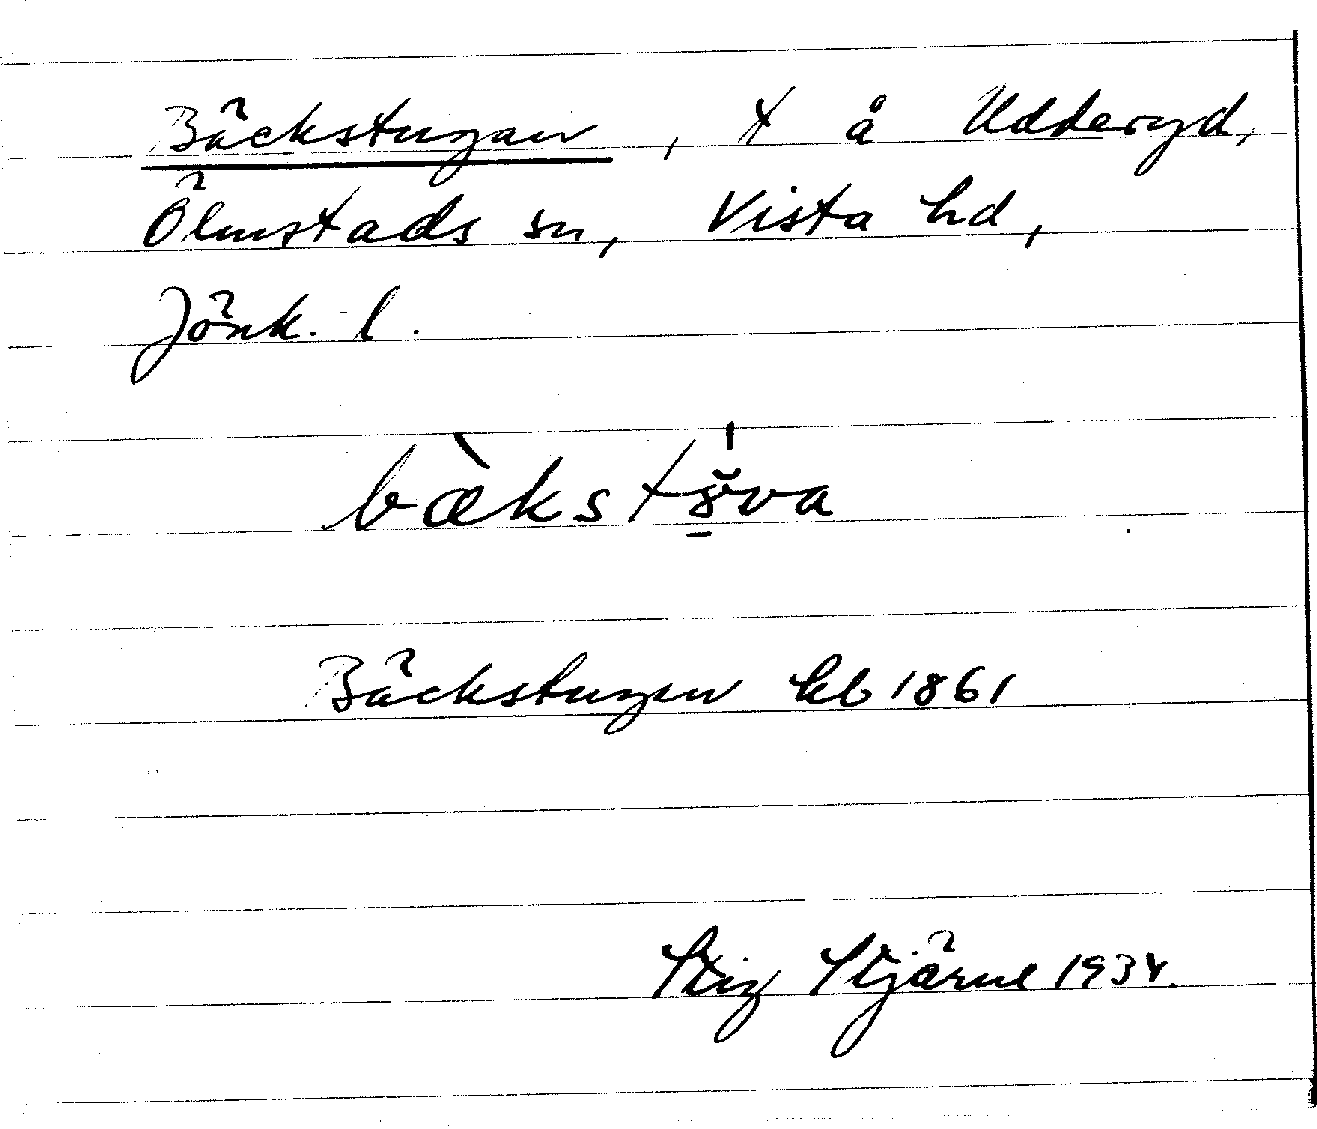 Bäckstugan, t å Udderyd,
Ölmstads sn, Vista hd,
Jönk. l.
bækstova
Bäckstugan kb 1861
Stig Stjärne 1934.